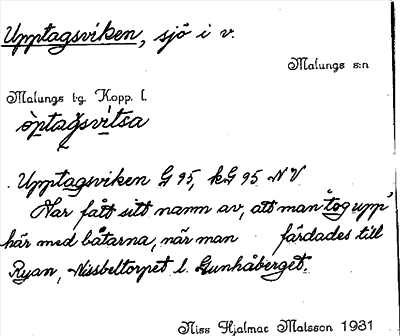 Upptagsviken, sjö i v.
Malungs s:n
Malungs tg. Kopp. l.
òptagsvitsa
Upptagsviken G 95, kG 95 NV
Har fått sitt namn av, att man "tog upp"
här med båtarna, när man färdades till
Ryan, Nissbeltorpet l. Gunhåberget.
Niss Hjalmar Matsson 1931